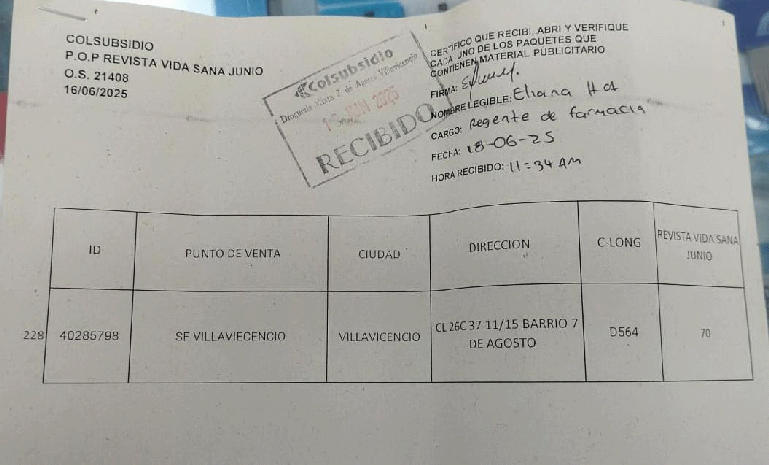 COLSUBSIDIO
P.O.P REVISTA VIDA SANA JUNIO
O.S. 21408
16/06/2025
Colsubsidio
Drogueria
7 de Agosto Villavicencio
2025
RECIBIDO
CERTIFICO QUE RECIBI, ABRI Y VERIFIQUE
CADA UNO DE LOS PAQUETES QUE
CONTIENEN MATERIAL PUBLICITARIO
FIRMA:
NOMBRE LEGIBLE: Eliana
CARGO: Regente de farmacia
FECHA: 18-06-25
HORA RECIBIDO: 11:34 AM
ID PUNTO DE VENTA CIUDAD DIRECCION C LONG REVISTA VIDA SANA
JUNIO
228 40285798 SF VILLAVIECENCIO VILLAVICENCIO CL 26C 37 11/15 BARRIO 7 D564 70
DE AGOSTO